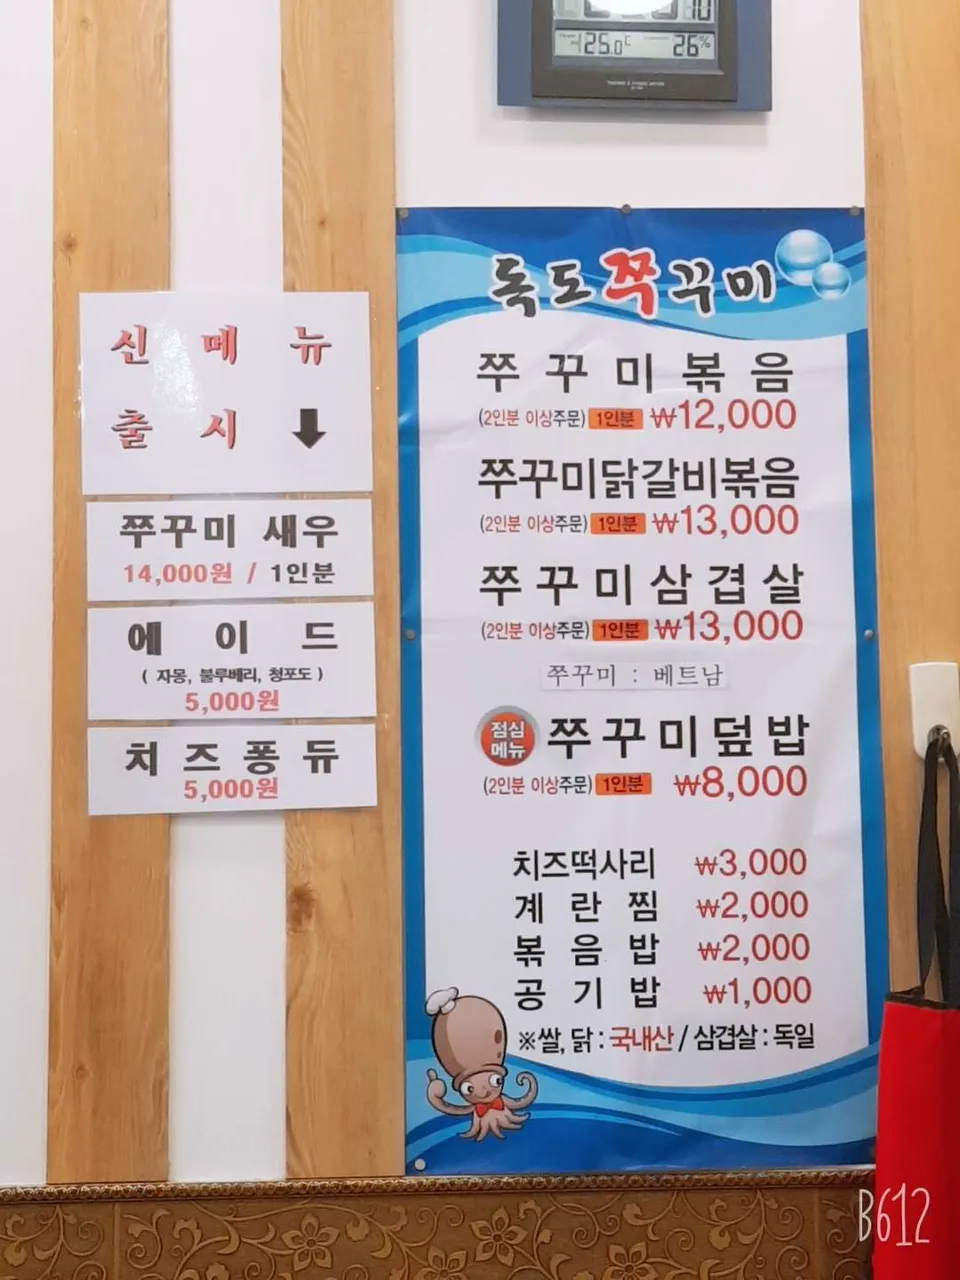 25.0℃ 26%
독도쭈꾸미
쭈꾸미볶음
(2인분 이상주문) 1인분 ₩12,000
쭈꾸미닭갈비볶음
(2인분 이상주문) 1인분 ₩13,000
쭈꾸미삼겹살
(2인분 이상주문) 1인분 ₩13,000
쭈꾸미 : 베트남
점심
메뉴
쭈꾸미덮밥
(2인분 이상주문) 1인분 ₩8,000
치즈떡사리 ₩3,000
계란찜 ₩2,000
볶음밥 ₩2,000
공기밥 ₩1,000
※쌀, 닭 : 국내산 / 삼겹살 : 독일
신메뉴
출시 ⬇
쭈꾸미 새우
14,000원 / 1인분
에이드
( 자몽, 블루베리, 청포도 )
5,000원
치즈퐁듀
5,000원
B612